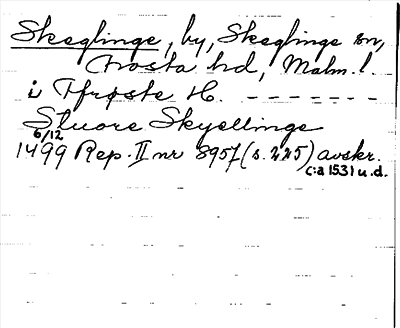 Skeglinge, by, Skeglinge sn,
Frosta hd, Malm. l.
i Tfrøste H. - - - - - - -
Stuore Skyellinge
6/12
1499 Rep. II nr 8957 (s. 225) avskr.
c:a 1531 u.d.